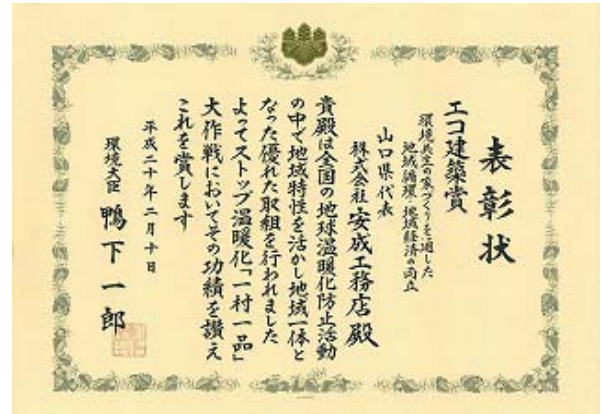 表彰状
エコ建築賞
環境共生の家づくりを通した
地域循環・地域経済の両立
山口県代表
株式会社 安成工務店 殿
貴殿は全国の地球温暖化防止活動
の中で地域特性を活かし地域一体と
なった優れた取組を行われました
よってストップ温暖化「一村一品」
大作戦においてその功績を讃え
これを賞します
平成二十年二月十日
環境大臣 鴨下一郎